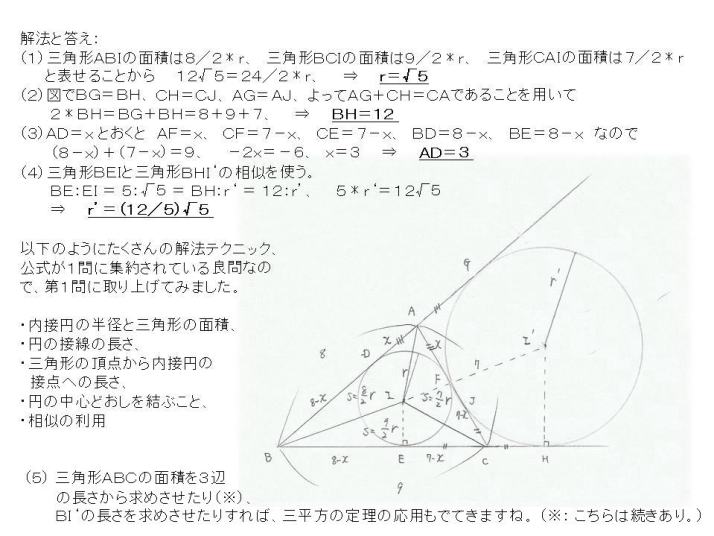 解法と答え:
(1)三角形ABIの面積は8/2*r、 三角形BCIの面積は9/2*r、 三角形CAIの面積は7/2*r
と表せることから 12√5=24/2*r、 ⇒ r=√5
(2)図でBG=BH、CH=CJ、AG=AJ、よってAG+CH=CAであることを用いて
2*BH=BG+BH=8+9+7、 ⇒ BH=12
(3)AD=xとおくと AF=x、 CF=7-x、 CE=7-x、 BD=8-x、 BE=8-x なので
(8-x)+(7-x)=9、 -2x=-6、 x=3 ⇒ AD=3
(4)三角形BEIと三角形BHI‘の相似を使う。
BE:EI = 5:√5 = BH:r‘ = 12:r’、 5*r‘=12√5
⇒ r’=(12/5)√5
以下のようにたくさんの解法テクニック、
公式が1問に集約されている良問なの
で、第1問に取り上げてみました。
・内接円の半径と三角形の面積、
・円の接線の長さ、
・三角形の頂点から内接円の
接点への長さ、
・円の中心どおしを結ぶこと、
・相似の利用
G
r'
A
x
x
8
D
I'
r
7
F
8-x
S=8/2r
I
S=7/2r
J
7-x
S=9/2r
B
8-x
E
7-x
C
H
9
(5) 三角形ABCの面積を3辺
の長さから求めさせたり(※)、
BI‘の長さを求めさせたりすれば、三平方の定理の応用もでてきますね。(※:こちらは続きあり。)